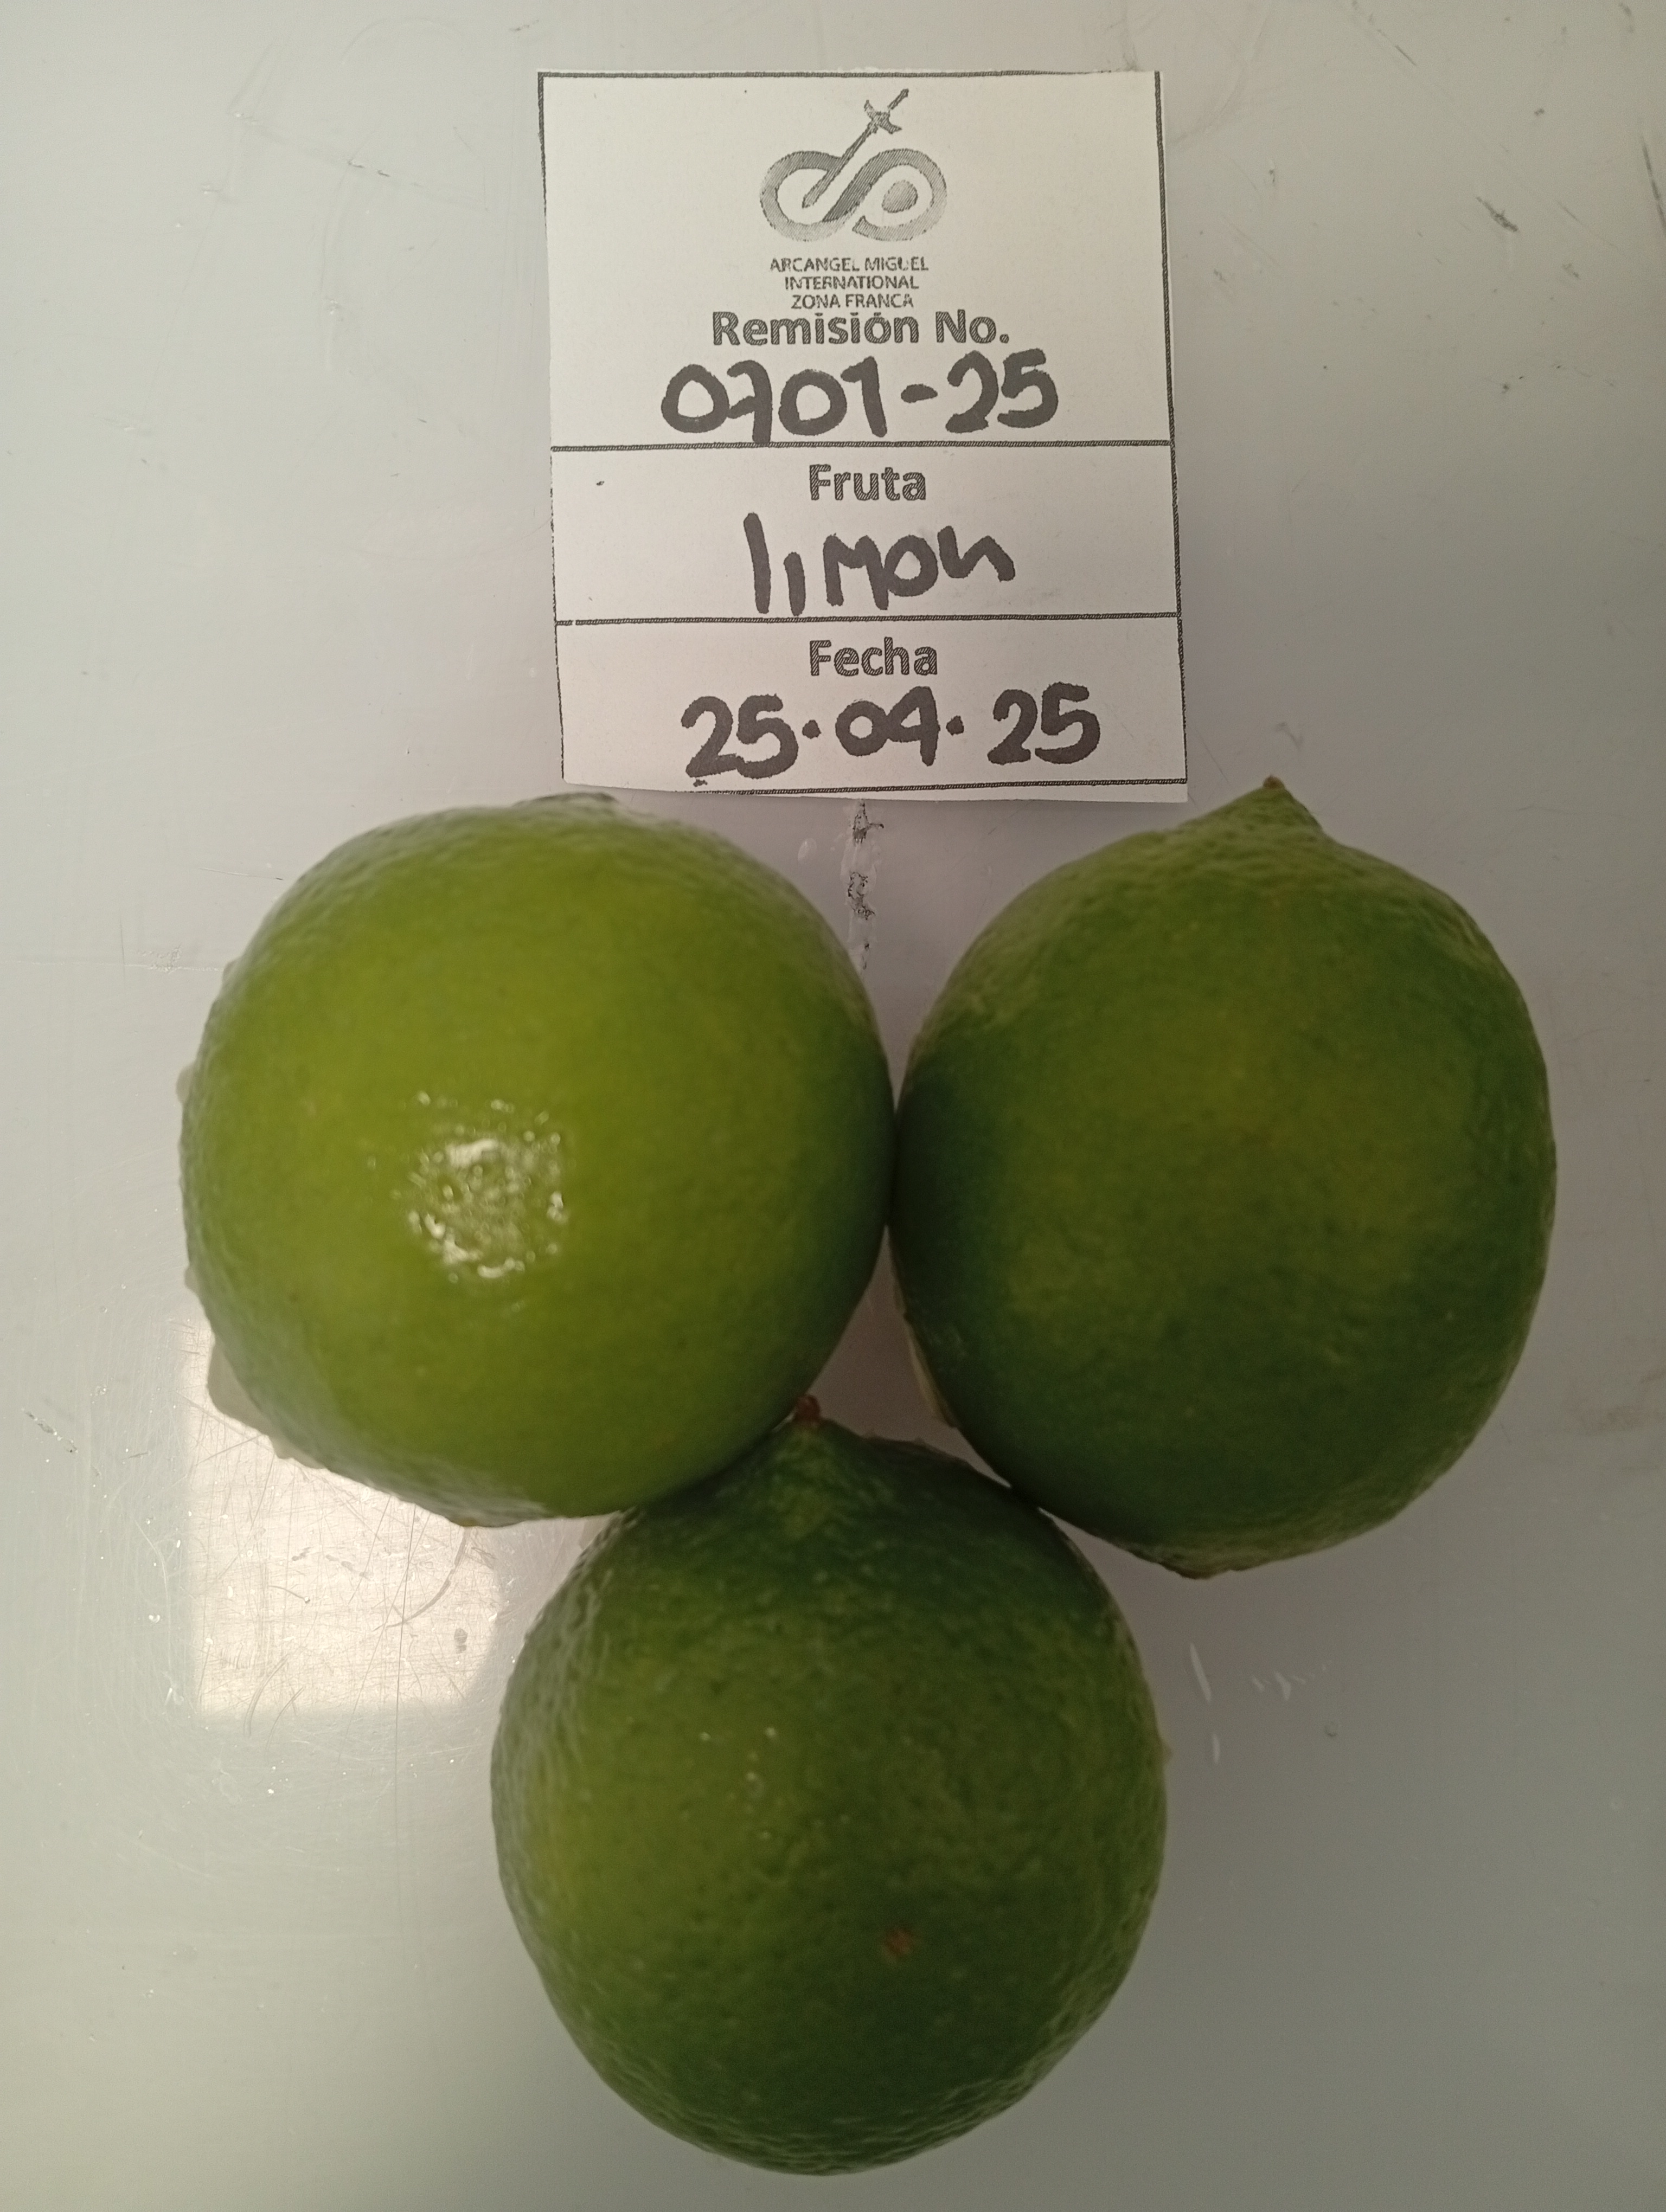 ARCANGEL MIGUEL
INTERNATIONAL
ZONA FRANCA
Remisión No.
0701-25
Fruta
limon
Fecha
25.04.25